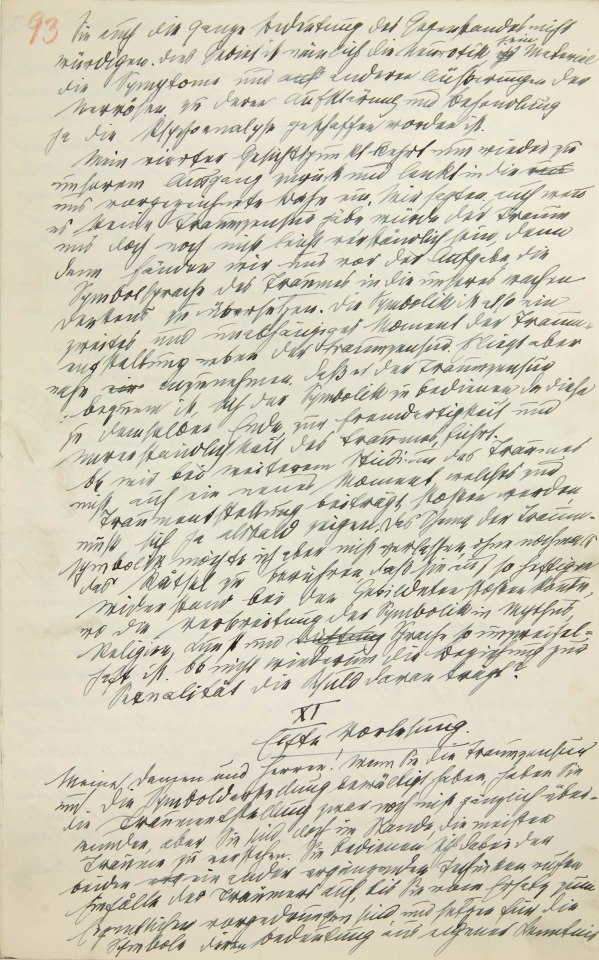 93
Sie auch die ganze Bedeutung des Gegenstandes nicht
würdigen. Dies Gebiet ist nämlich die Neurotik, sein Material
die Symptome und andere Äußerungen der
Nervösen, zu deren Aufklärung und Behandlung
ja die Psychoanalyse geschaffen worden ist.
Mein vierter Gesichtspunkt kehrt nun wieder zu
unserem Ausgang zurück und lenkt in die
uns vorgezeichnete Bahn ein. Wir sagten, auch wenn
es keine Traumzensur gäbe, würde der Traum
uns doch noch nicht leicht verständlich sein, denn
dann fänden wir uns vor der Aufgabe, die
Symbolsprache des Traumes in die unseres wachen
Denkens zu übersetzen. Die Symbolik ist also ein
zweites und unabhängiges Moment der Traum-
entstellung neben der Traumzensur. Es liegt aber
nahe anzunehmen, daß es der Traumzensur
bequem ist, sich der Symbolik zu bedienen, da diese
zu demselben Ende, zur Fremdartigkeit und
Unverständlichkeit des Traumes, führt.
Ob wir bei weiterem Studium des Traumes
nicht auf ein neues Moment, welches zur
Traumentstellung beiträgt, stoßen werden,
muß sich ja alsbald zeigen. Das Thema der Traum-
symbolik möchte ich aber nicht verlassen, ohne nochmals
das Rätsel zu berühren, daß sie auf so heftigen
Widerstand bei den Gebildeten stoßen konnte,
wo die Verbreitung der Symbolik in Mythus,
Religion, Kunst und Sprache so unzweifel-
haft ist. Ob nicht wiederum die Beziehung zur
Sexualität die Schuld daran trägt?
XI
Elfte Vorlesung.
Meine Damen und Herren! Wenn Sie die Traumzensur
und die Symboldarstellung bewältigt haben, haben Sie
die Traumentstellung zwar noch nicht gänzlich über-
wunden, aber Sie sind doch im Stande, die meisten
Träume zu verstehen. Sie bedienen sich dabei der
beiden einander ergänzenden Techniken, rufen
Einfälle des Träumers auf, bis Sie vom Ersatz zum
Eigentlichen vorgedrungen sind und setzen für die
Symbole deren Bedeutung aus eigener Kenntnis